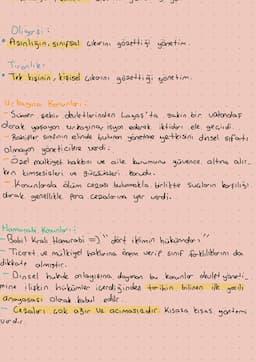 Oligarşi:
• Azınlığın, sınıfsal çıkarını gözettiği yönetim.
Tiranlık:
• Tek kişinin, kişisel çıkarını gözettiği yönetim.
Urkagina Kanunları:
- Sümer şehir devletlerinden Lagaş'ta sakin bir vatandaş
olarak yaşayan Urkagina, isyan ederek iktidarı ele geçirdi.
- Rahipler sınıfının elinde bulunan yönetme yetkisini dinsel sıfatı
olmayan yöneticilere verdi.
- Özel mülkiyet hakkını ve aile kurumunu güvence altına alır-
ken kimsesizleri ve güçsüzleri korudu.
- Kanunlarda ölüm cezası bulunmakla birlikte suçların karşılığı
olarak genellikle para cezalarına yer verdi.
Hammurabi Kanunları:
- Babil Kralı Hamurabi => "dört iklimin hükümdarı"
- Ticaret ve mülkiyet haklarına önem verip sınıf farklılıklarını da
dikkate almıştır.
- Dinsel hukuk anlayışına dayanan bu kanunlar devlet yöneti-
mine ilişkin hükümler içerdiğinden tarihin bilinen ilk yazılı
anayasası olarak kabul edilir.
- Cezaları çok ağır ve acımasızdır. Kısasa kısas yöntemi
vardır.